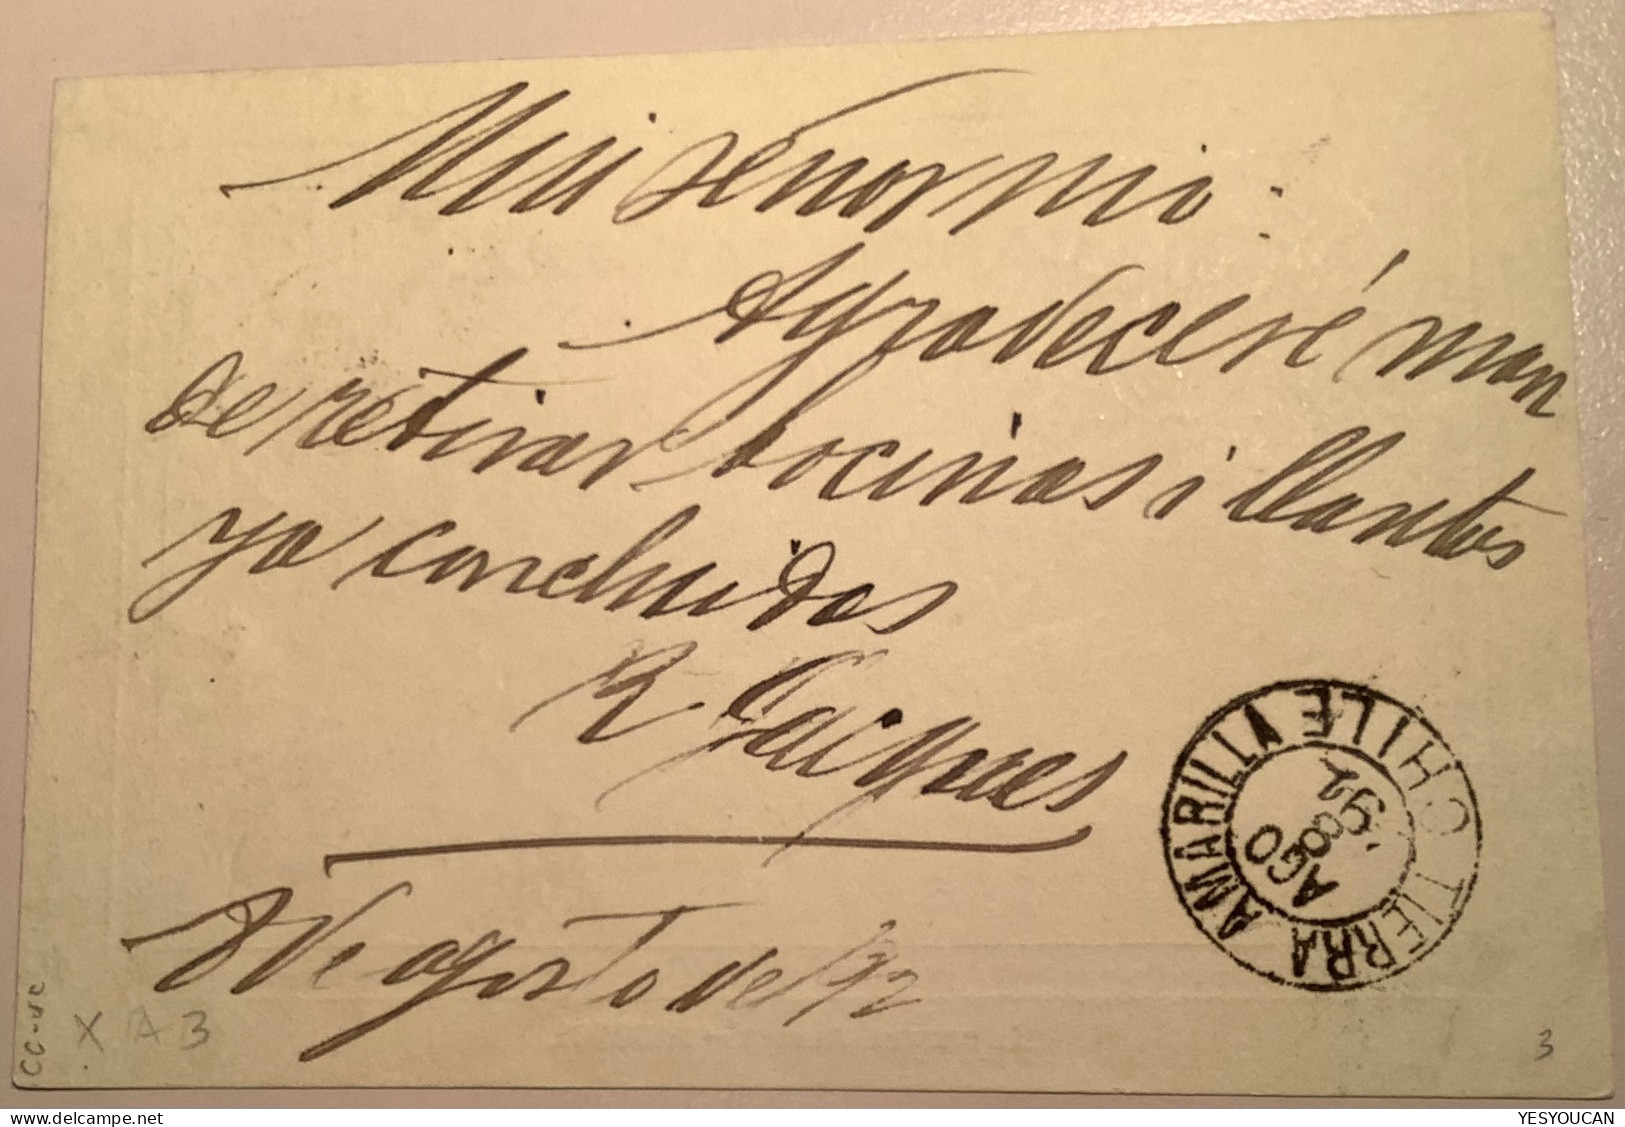 Mui señor mio:
Agradeceré man
de retirar bocinas i llantas
ya concluidas
R. Jacques
8 de agosto de 92
TIERRA AMARILLA CHILE
AGO
8
92
CC-UC
X A 3
3
delcampe.net
YESYOUCAN